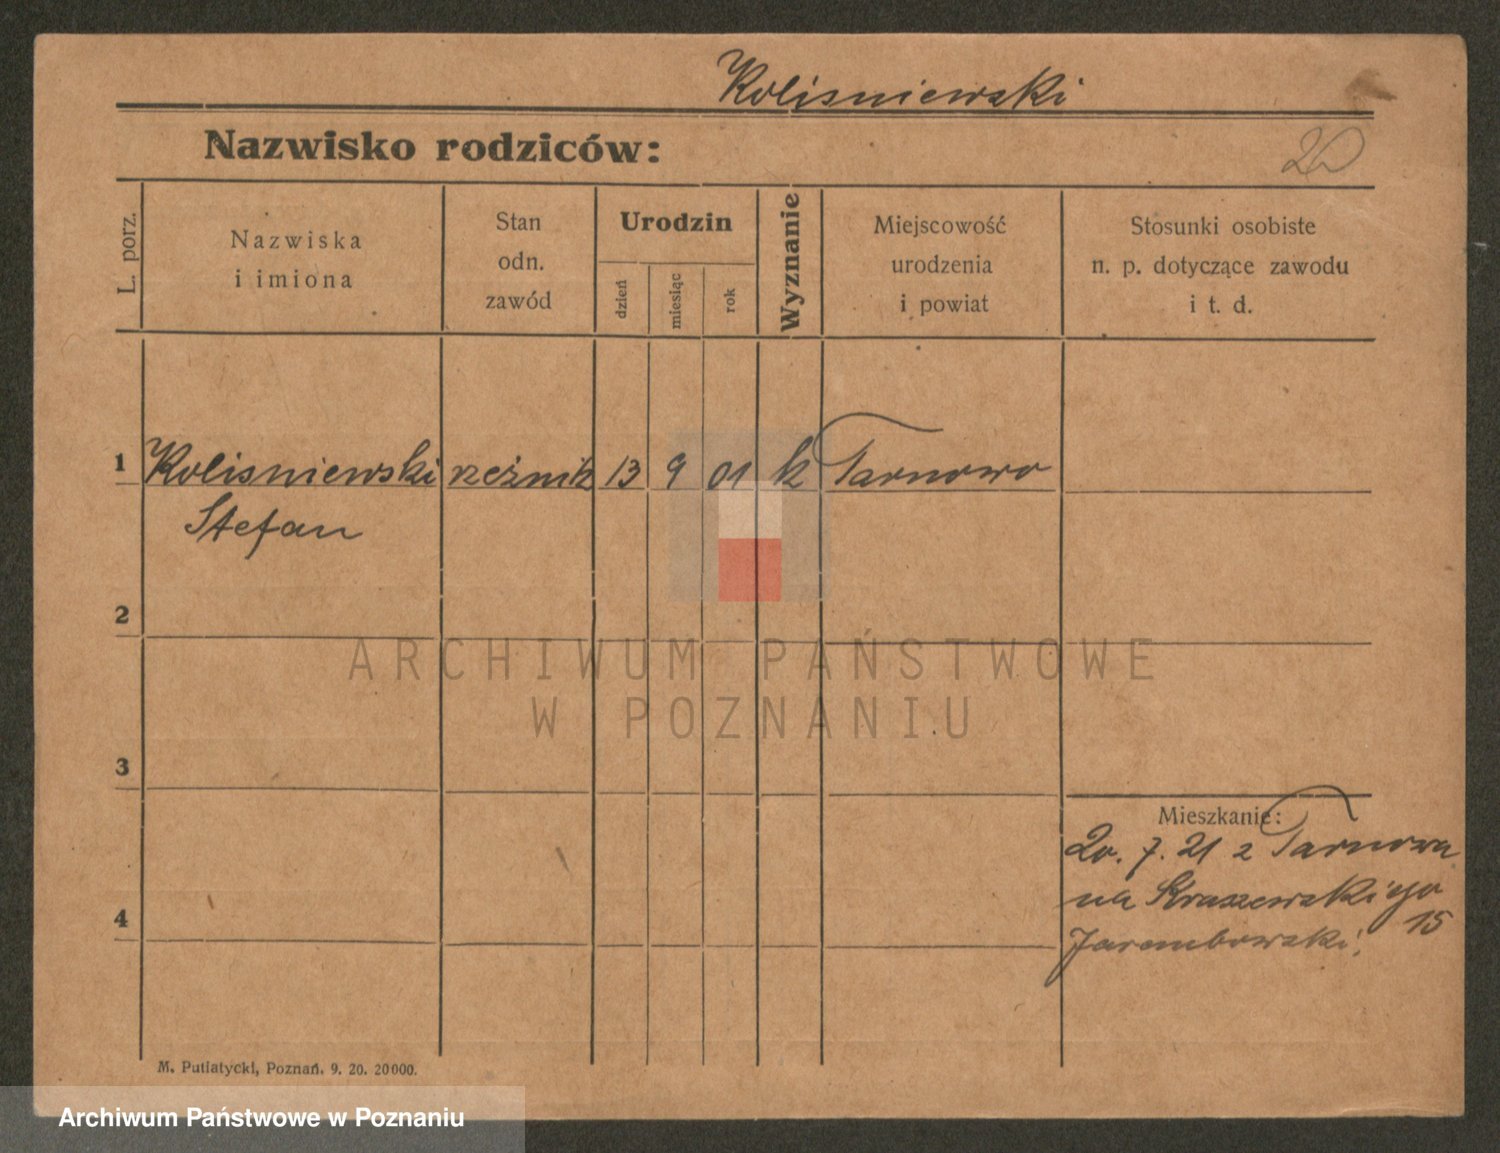 Kolisniewski
Nazwisko rodziców:
20
L. porz.
Nazwiska
i imiona
Stan
odn.
zawód
Urodzin
dzień
miesiąc
rok
Wyznanie
Miejscowość
urodzenia
i powiat
Stosunki osobiste
n. p. dotyczące zawodu
i t. d.
1 Kolisniewski rzeźnik 13 9 01 k Tarnowo
Stefan
2
ARCHIWUM PAŃSTWOWE
W POZNANIU
3
Mieszkanie:
20. 7. 21 z Tarnowa
na Kraszewskiego
15
4
M. Putiatycki, Poznań. 9. 20. 20000.
Archiwum Państwowe w Poznaniu